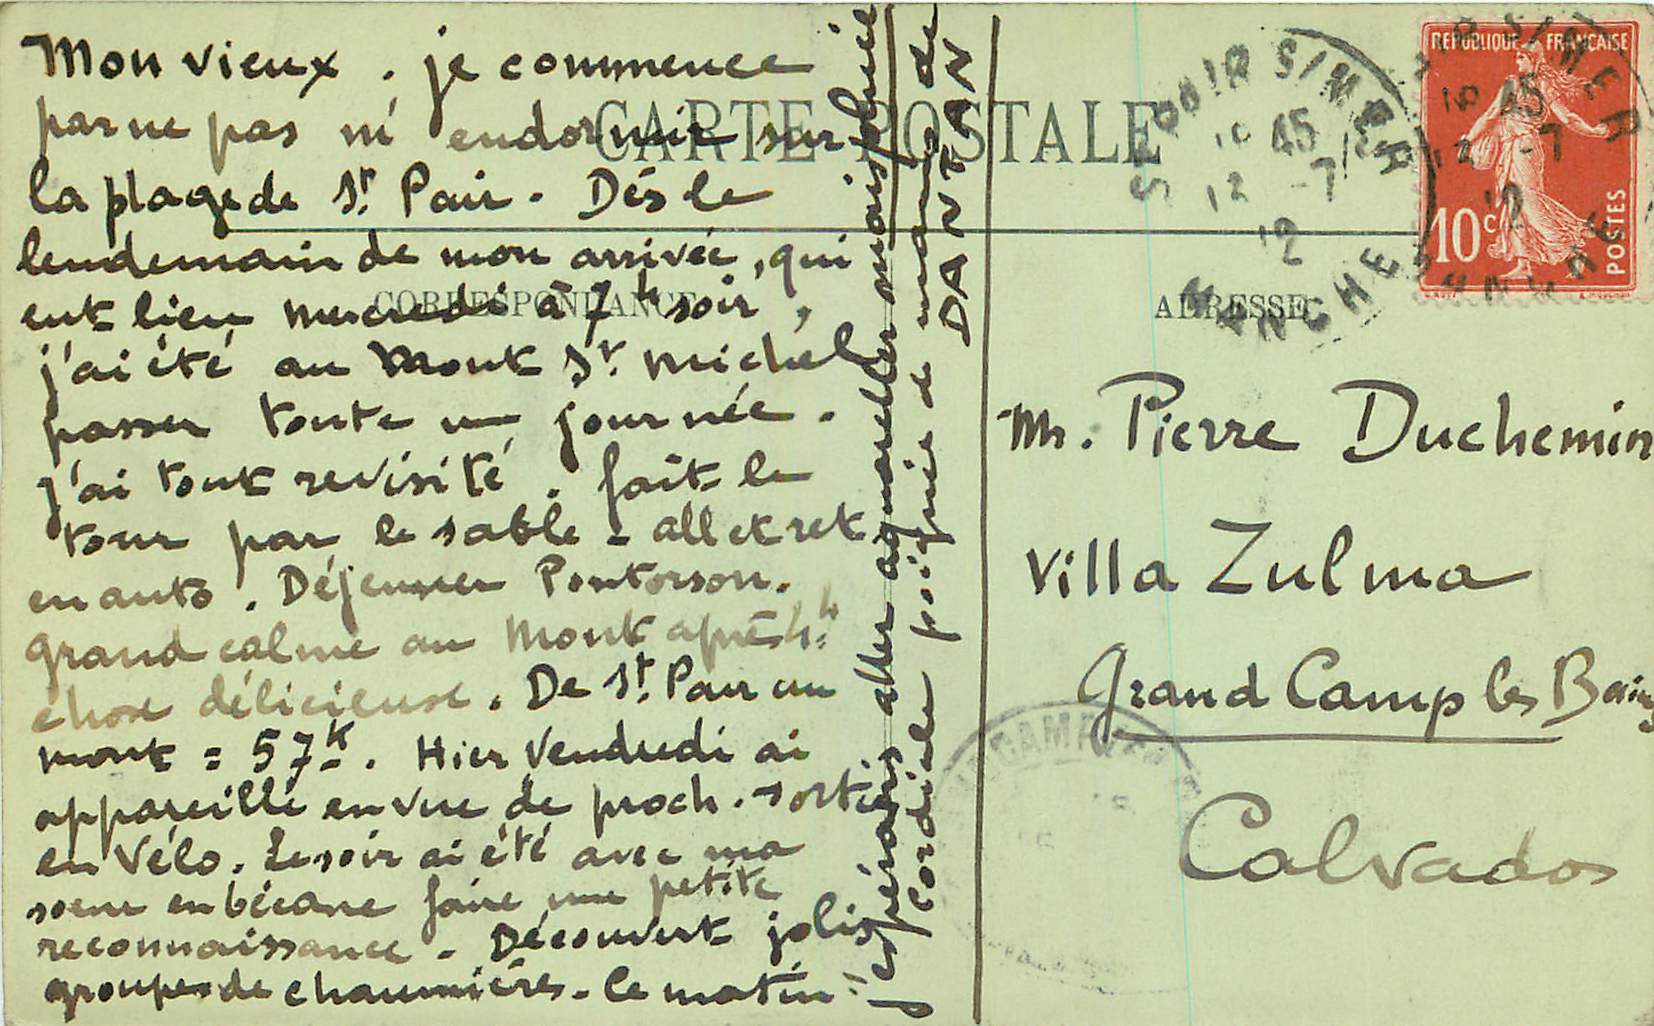 Mon vieux. je commence
par ne pas m'endormir sur
la plage de St. Pair. Dés le
lendemain de mon arrivée, qui
eut lieu mercredi à 7h soir,
j'ai été au Mont St. Michel
passer toute un journée.
j'ai tout revisité. fait le
tour par le sable - all et ret
en auto. Déjeuner Pontorson.
grand calme au Mont après 4h.
chose délicieuse. De St. Pair au
mont = 57k. Hier Vendredi ai
appareillé en vue de proch. sortie
en Vélo. Le soir ai été avec ma
soeur en bécane faire une petite
reconnaissance - Découvert jolis
groupes de chaumières - Ce matin
j'espérais aller aquareller mais pluie
Cordiale poignée de mains de
DANTAN
CARTE POSTALE
CORRESPONDANCE
ADRESSE
RÉPUBLIQUE FRANÇAISE
10c
POSTES
ST PAIR S/MER
16 45
12 -7
12
MANCHE
Mr. Pierre Duchemin
Villa Zulma
Grand Camp les Bains
Calvados